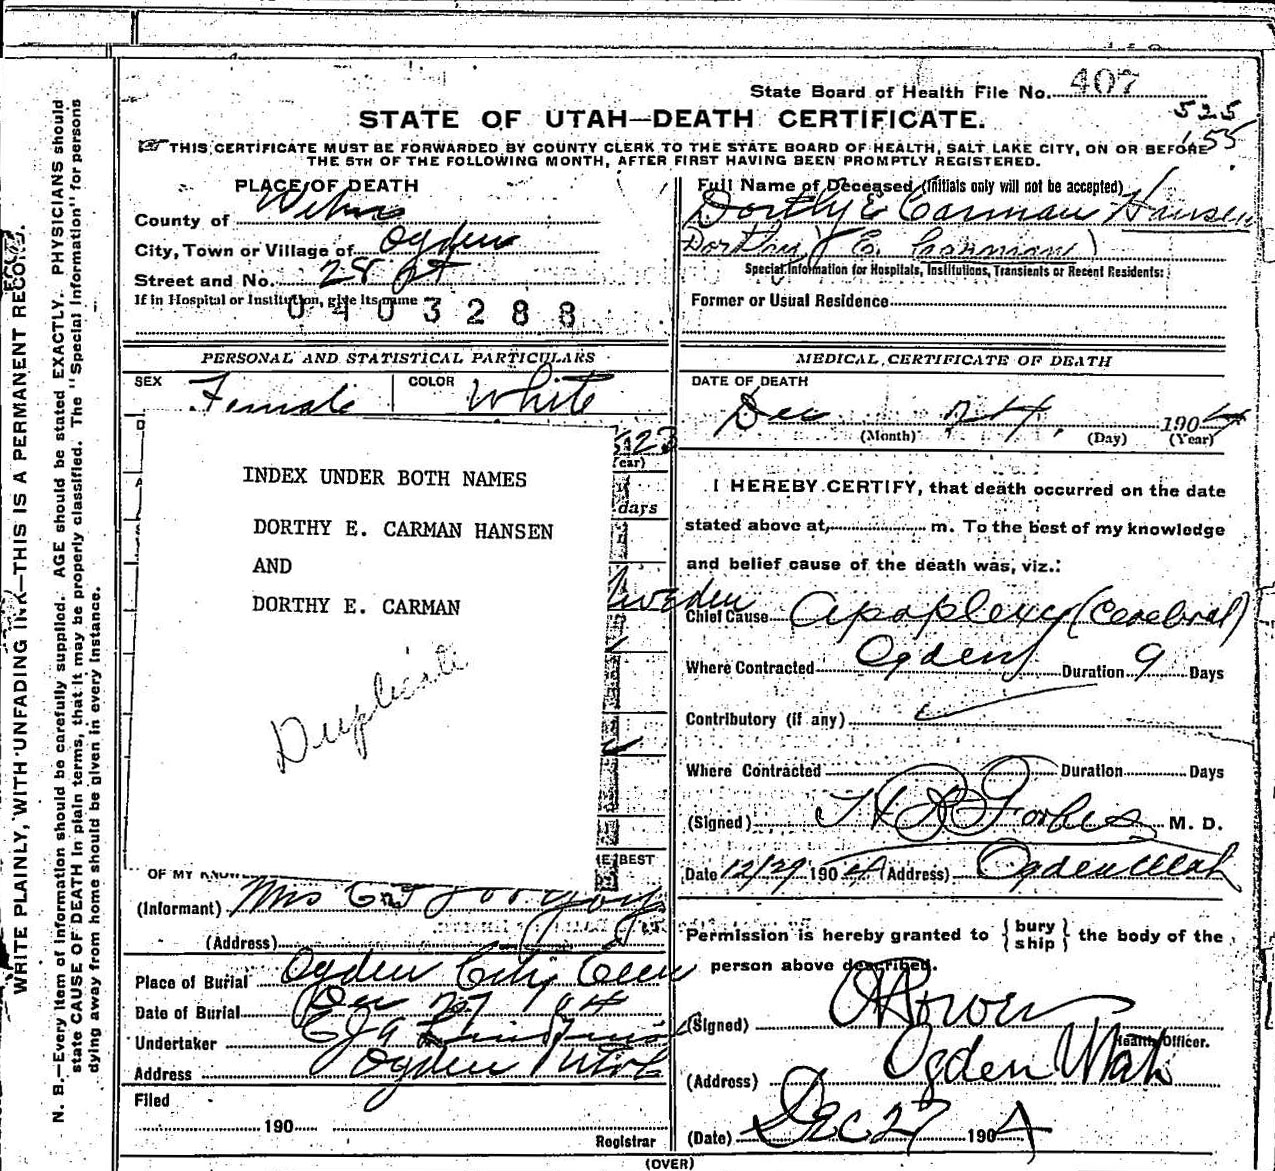 State Board of Health File No. 407
525
155
STATE OF UTAH—DEATH CERTIFICATE.
THIS CERTIFICATE MUST BE FORWARDED BY COUNTY CLERK TO THE STATE BOARD OF HEALTH, SALT LAKE CITY, ON OR BEFORE
THE 5TH OF THE FOLLOWING MONTH, AFTER FIRST HAVING BEEN PROMPTLY REGISTERED.
WRITE PLAINLY, WITH UNFADING INK—THIS IS A PERMANENT RECORD.
N. B.—Every item of information should be carefully supplied. AGE should be stated EXACTLY. PHYSICIANS should
state CAUSE OF DEATH in plain terms, that it may be properly classified. The "Special Information" for persons
dying away from home should be given in every instance.
PLACE OF DEATH
County of Weber
City, Town or Village of Ogden
Street and No. 28 st
If in Hospital or Institution, give its name
0403288
PERSONAL AND STATISTICAL PARTICULARS
SEX Female COLOR White
23
(Year)
days
INDEX UNDER BOTH NAMES
DORTHY E. CARMAN HANSEN
AND
DORTHY E. CARMAN
Duplicate
Sweden
HE BEST
OF MY KNOW
(Informant) Mrs
(Address)
Place of Burial Ogden City Cem
Date of Burial Dec 27 1904
Undertaker
Address Ogden Utah
Filed
190
Registrar
Full Name of Deceased (Initials only will not be accepted)
Dorthy E Carman Hansen
Dorthy E. Carman)
Special Information for Hospitals, Institutions, Transients or Recent Residents:
Former or Usual Residence
MEDICAL CERTIFICATE OF DEATH
DATE OF DEATH
Dec 24. 1904
(Month) (Day) (Year)
I HEREBY CERTIFY, that death occurred on the date
stated above at, m. To the best of my knowledge
and belief cause of the death was, viz.:
Chief Cause Apoplexy (Cerebral)
Where Contracted Ogden Duration 9 Days
Contributory (if any)
Where Contracted Duration Days
(Signed) Forbes M. D.
Date 12/27 1904 (Address) Ogden Utah
Permission is hereby granted to { bury ship } the body of the
person above described.
(Signed)
Health Officer.
(Address) Ogden Utah
(Date) Dec 27 1904
(OVER)